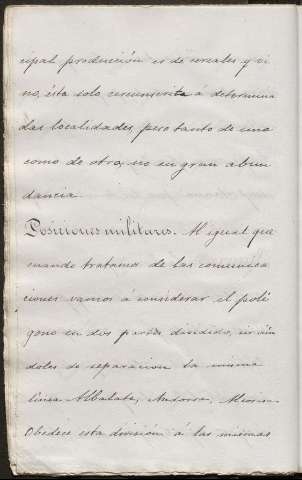 cipal producción es de cereales y vi
no, ésta solo circunscrita á determina
das localidades, pero tanto de una
como de otra, no en gran abun
dancia.
Posiciones militares. Al igual que
cuando tratamos de las comunica
ciones vamos á considerar el polí
gono en dos partes dividido, sirvién
doles de separacion la misma
línea Albalate, Andorra,
Obedece esta división á las mismas